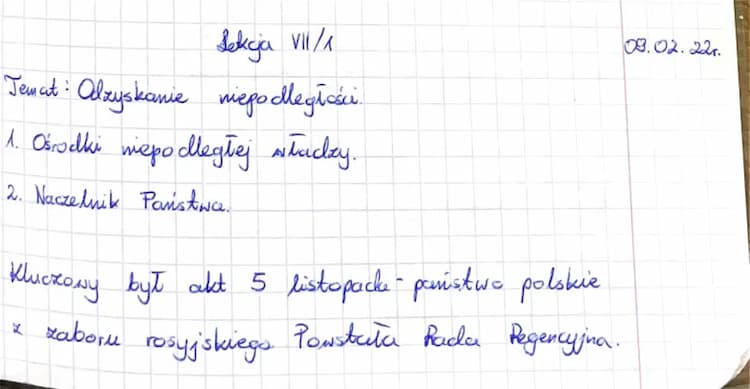 Lekcja VII/1
09.02.22r.
Temat: Odzyskanie niepodległości.
1. Ośrodki niepodległej władzy.
2. Naczelnik Państwa.
Kluczowy był akt 5 listopada - państwo polskie
z zaboru rosyjskiego Powstała Rada Regencyjna.